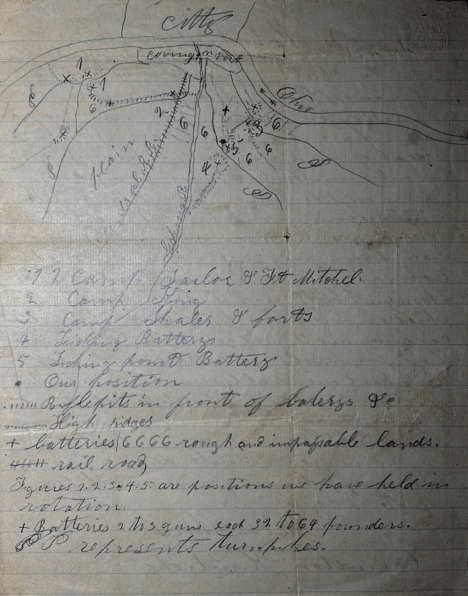 citty
Covington
Ohio
1
1
2
6
6
6
6
6
4
3
plain
1 1 Camp Tailor & Ft Mitchel
2 Camp King
3 Camp Shales & forts
4 Licking Battery
5 Licking point Battery
• Our position
Riflepits in front of baterys &c
High ridges
+ batteries 6666 rough and impassable lands.
rail road
Figures 1. 2. 3. 4. 5. are positions we have held in
rotation.
+ Batteries 2 to 3 guns each 32 to 64 pounders.
represents turnpikes.